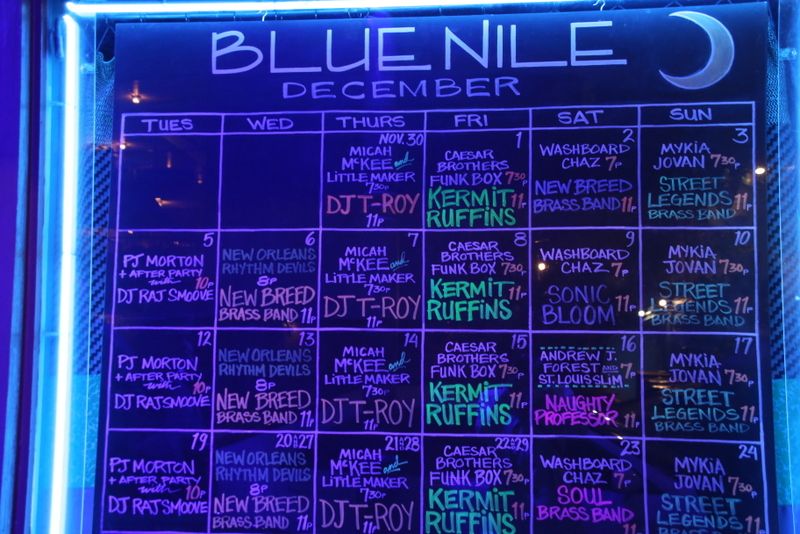 BLUE NILE
DECEMBER
TUES WED THURS FRI SAT SUN
NOV. 30
MICAH
MCKEE and
LITTLE MAKER
730P
DJ T-ROY
11P
1
CAESAR
BROTHERS
FUNK BOX 730P
KERMIT
RUFFINS 11P
2
WASHBOARD
CHAZ 7P
NEW BREED
BRASS BAND 11P
3
MYKIA
JOVAN 730P
STREET
LEGENDS 11P
BRASS BAND
5
PJ MORTON
+ AFTER PARTY
with 10P
DJ RAJ SMOOVE
6
NEW ORLEANS
RHYTHM DEVILS
8P
NEW BREED
BRASS BAND 11P
7
MICAH
MCKEE and
LITTLE MAKER
730P
DJ T-ROY
11P
8
CAESAR
BROTHERS
FUNK BOX 730P
KERMIT
RUFFINS 11P
9
WASHBOARD
CHAZ 7P
SONIC
BLOOM 11P
10
MYKIA
JOVAN 730P
STREET
LEGENDS 11P
BRASS BAND
12
PJ MORTON
+ AFTER PARTY
with 10P
DJ RAJ SMOOVE
13
NEW ORLEANS
RHYTHM DEVILS
8P
NEW BREED
BRASS BAND 11P
14
MICAH
MCKEE and
LITTLE MAKER
730P
DJ T-ROY
11P
15
CAESAR
BROTHERS
FUNK BOX 730P
KERMIT
RUFFINS 11P
16
ANDREW J.
FOREST AND 7P
ST. LOUIS SLIM
NAUGHTY
PROFESSOR 11P
17
MYKIA
JOVAN 730P
STREET
LEGENDS 11P
BRASS BAND
19
PJ MORTON
+ AFTER PARTY
with 10P
DJ RAJ SMOOVE
20 & 27
NEW ORLEANS
RHYTHM DEVILS
8P
NEW BREED
BRASS BAND 11P
21 & 28
MICAH
MCKEE and
LITTLE MAKER
730P
DJ T-ROY
11P
22 & 29
CAESAR
BROTHERS
FUNK BOX 730P
KERMIT
RUFFINS 11P
23
WASHBOARD
CHAZ 7P
SOUL
BRASS BAND
11
24
MYKIA
JOVAN 730P
STREET
LEGENDS 11P
BRASS BAND